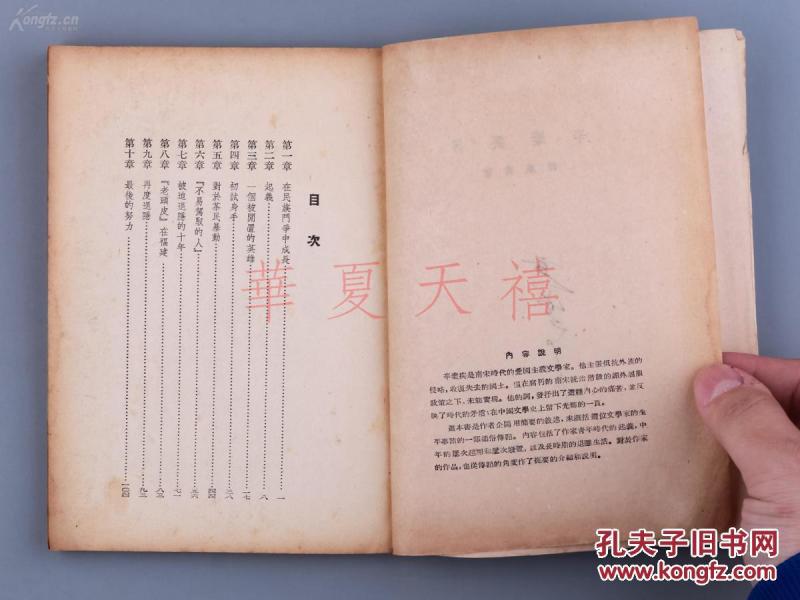 kongfz.cn
目次
第一章 在民族鬥爭中成長 一
第二章 起義 八
第三章 一個被閒置的英雄 一七
第四章 初試身手 二八
第五章 對於茶民暴動
第六章 『不易駕馭的人』
第七章 被迫退隱的十年 七一
第八章 『老頭皮』在福建
第九章 再度退隱
第十章 最後的努力
華夏天禧
內容說明
辛棄疾是南宋時代的愛國主義文學家。他主張抵抗外族的
侵略，收復失去的國土。但在腐朽的南宋統治階級的對外屈服
政策之下，未能實現。他的詞，發抒出了這種內心的痛苦，並反
映了時代的矛盾；在中國文學史上留下光輝的一頁。
這本書是作者企圖用簡要的敘述，來概括這位文學家的生
平事蹟的一部通俗傳記。內容包括了作家青年時代的起義，中
年的屢次起用和屢次廢置，以及長時期的退隱生活。對於作家
的作品，也從傳記的角度作了扼要的介紹和說明。
孔夫子旧书网
www.kongfz.com